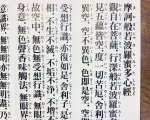 摩訶般若波羅蜜多心經
觀自在菩薩。行深般若波羅蜜
見五蘊皆空。度一切苦厄。舍
異空。空不異色。色即是空。空
受想行識。亦復如是。舍利子。是
相。不生不滅。不垢不淨。不增
故空中。無色。無受想行識
身意。無色聲香味觸法。無眼
意識界。無無明。亦無無明盡。乃